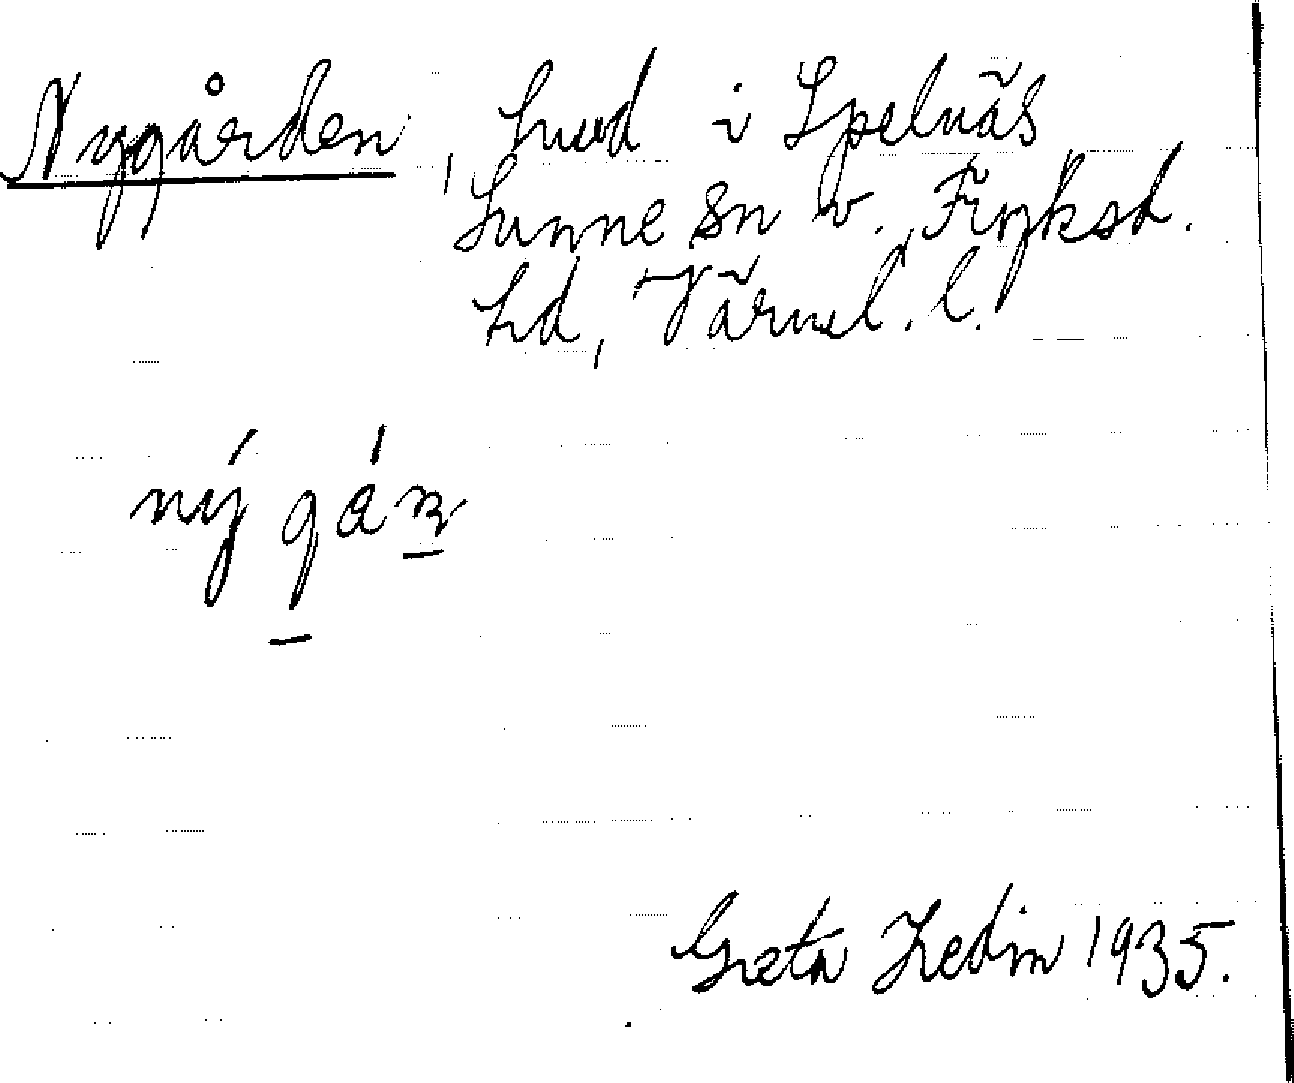 Nygården, hmd i Spelnäs
Sunne sn v. Fryksd.
hd, Värml. l.
ný gáṉ
Greta Hedin 1935.